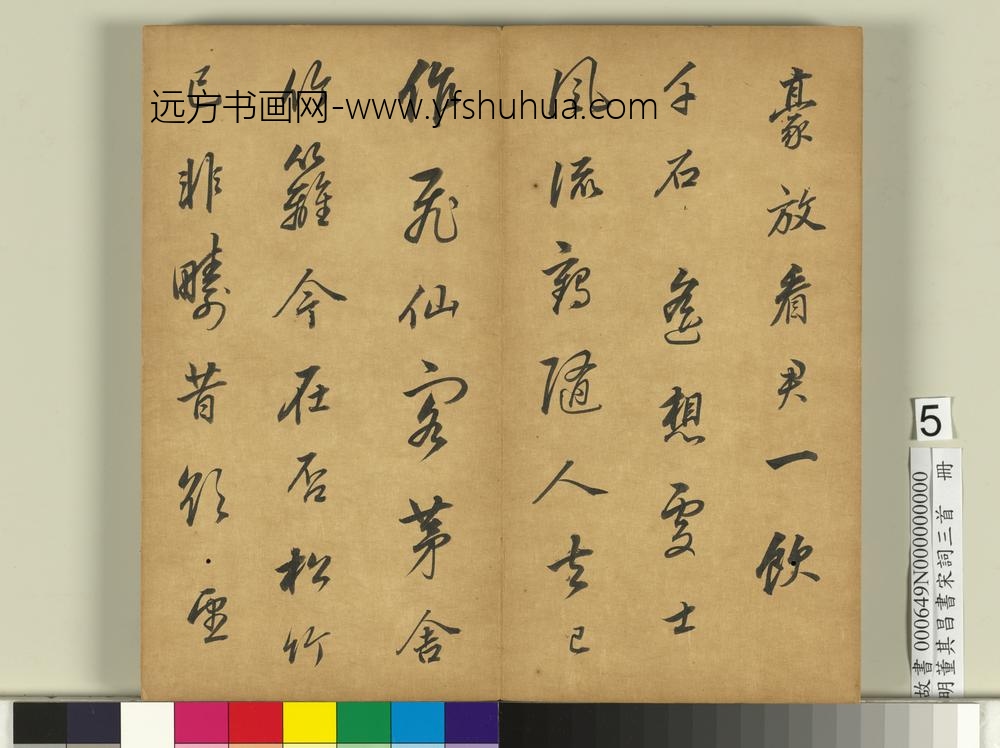 豪放看君一飲
千石遙想處士
風流鶴隨人去已
作飛仙客茅舍
竹籬今在否松竹
已非疇昔欲望
远方书画网-www.yfshuhua.com
5
故書 000649N000000000
明董其昌書宋詞三首 冊